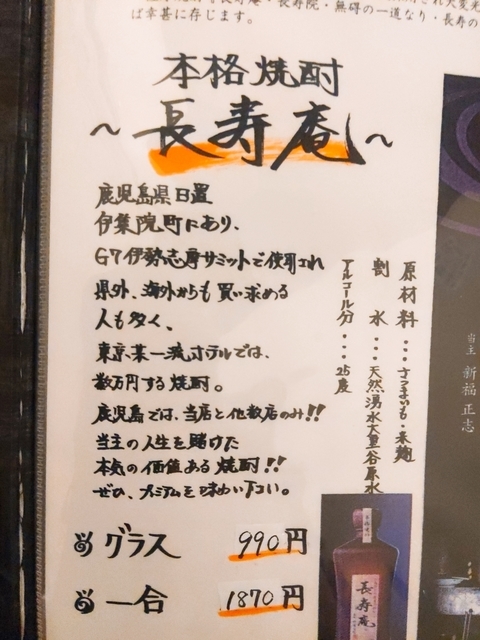 長寿庵・長寿院・無碍の一道なり・長寿の
ば幸甚に存じます。
本格焼酎
～長寿庵～
鹿児島県日置
伊集院町にあり、
G7伊勢志摩サミットで使用され
県外、海外からも買い求める
人も多く、
東京某一流ホテルでは、
数万円する焼酎。
鹿児島では、当店と他数店のみ!!
当主の人生を賭けた
本気の価値ある焼酎!!
ぜひ、プレミアムを味わい下さい。
原材料・・・さつまいも・米麹
割水・・・天然湧水大重谷原水
アルコール分・・・25度
グラス 990円
一合 1870円
当主 新福 正志
長寿庵